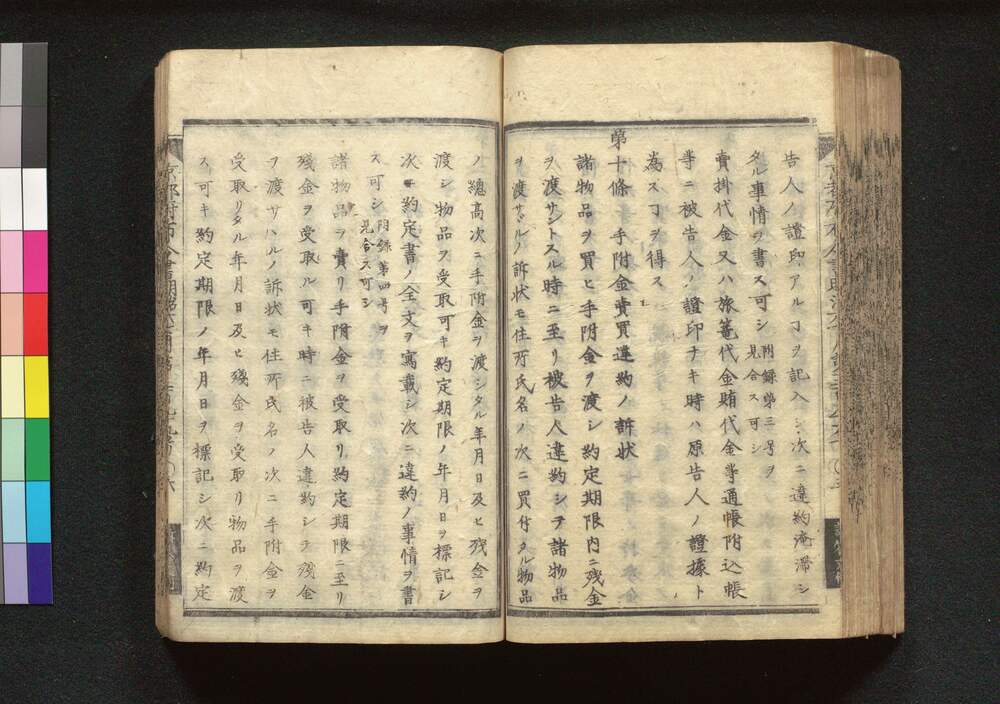 告人ノ證印アルヿヲ記入シ次ニ違約淹滯シ
タル事情ヲ書ス可シ附錄第三号ヲ見合ス可シ
賣掛代金又ハ旅篭代金賄代金等通帳附込帳
等ニ被告人ノ證印ナキ時ハ原告人ノ證據ト
為スヿヲ得ス
第十條 手附金賣買違約ノ訴状
諸物品ヲ買ヒ手附金ヲ渡シ約定期限内ニ残金
ヲ渡サントスル時ニ至リ被告人違約シテ諸物品
ヲ渡サヾルノ訴状モ住所氏名ノ次ニ買付タル物品
ノ總高次ニ手附金ヲ渡シタル年月日及ヒ残金ヲ
渡シ物品ヲ受取可キ約定期限ノ年月日ヲ標記シ
次ニ約定書ノ全文ヲ寫載シ次ニ違約ノ事情ヲ書
ス可シ附錄第四号ヲ見合ス可シ
諸物品ヲ賣リ手附金ヲ受取リ約定期限ニ至リ
殘金ヲ受取ル可キ時ニ被告人違約シテ残金
ヲ渡サハルノ訴状モ住所氏名ノ次ニ手附金ヲ
受取リタル年月日及ヒ殘金ヲ受取リ物品ヲ渡
ス可キ約定期限ノ年月日ヲ標記シ次ニ約定